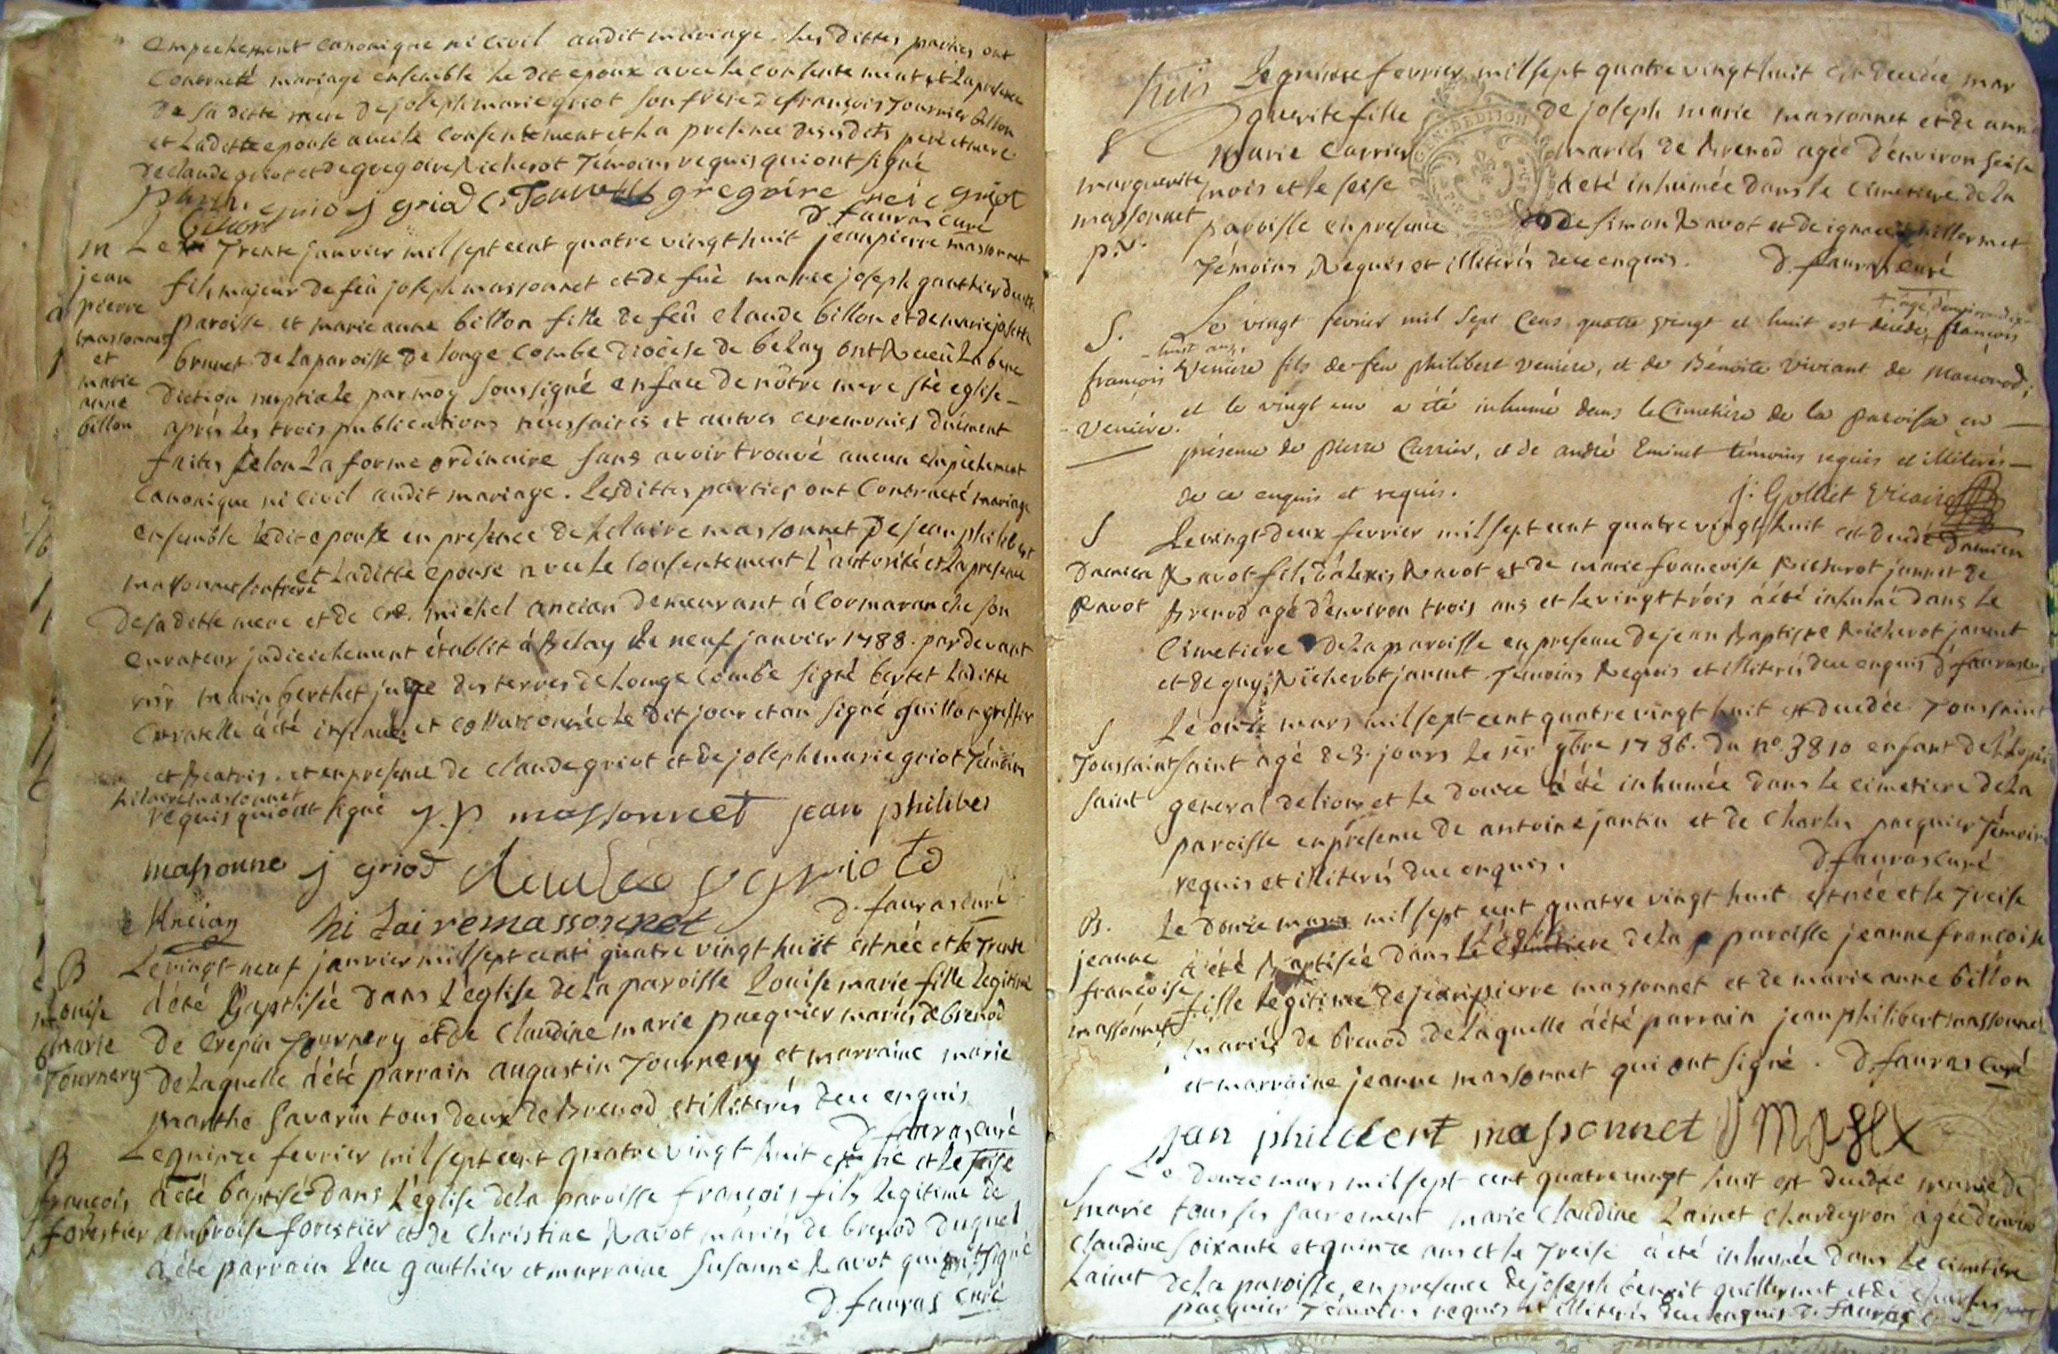 empechement canonique ni civil audit mariage. Les dittes parties ont
Contracté mariage ensemble le dit epoux avec le consentement et la presence
de sa ditte mere de joseph marie griot son frere de françois Tournier billon
et Laditte epouse avec le consentement et La presence desesdits pere et mere
declaude griot et de gregoire Richerot Témoins requis qui ont signé
j griod gregoire griot
d. fauras curé
M
jean
pierre
massonnet
et
marie
anne
billon
Le Trente janvier mil sept cent quatre vingt huit jean pierre massonnet
fils majeur de feû joseph massonnet et de fuë marie joseph gauthier de cette
paroisse et marie anne billon fille de feû claude billon et de marie josephte
brunet de la paroisse de longe combe diocèse de belay ont Receû la bene
diction nuptiale par moy soussigné en face de nôtre mere ste eglise
après les trois publications nécessaires et autres ceremonies duëment
faites selon La forme ordinaire sans avoir trouvé aucun empêchement
Canonique ni civil audit mariage. Lesdittes parties ont Contracté mariage
ensemble ledit epoux en presence de hilaire massonnet de jean philibert
massonnet son frere et Laditte epouse avec le consentement L'autorité et La presence
de sa ditte mere et de michel ancian demeurant à Cormaranche son
curateur judiciellement établit à Belay le neuf janvier 1788. par devant
marin berthet juge des terres de Longe Combe signé bertet Laditte
Curatelle à été et le dit jour et an signé guillot greffier
et en presence de claude griot et de joseph marie griot Témoins
hilaire massonnet
requis qui ont signé j.p massonnet jean philiber
massonne j griod claude griot
Ancian hilairemassonnet d. fauras curé
B
Louise
marie
Tournery
Le vingt-neuf janvier mil sept cent quatre vingt huit est née et le Trente
à été Baptisée dans L'eglise de La paroisse Louise marie fille Legitime
de Crepin Tournery et de Claudine marie pacquier mariés de brenod
de Laquelle à été parrain augustin Tournery et marraine marie
marthe Savarin tous deux de Brenod et illiterés de ce enquis
d. fauras curé
B
françois
forestier
Le quinze fevrier mil sept cent quatre vingt huit est né et le seise
à été baptisé dans L'église de La paroisse françois fils Legitime de
ambroise forestier et de Christine Ravot mariés de brenod duquel
à été parrain Luc gauthier et marraine Susanne Ravot qui ont signé
d. fauras curé
huis
S
marguerite
massonnet
Le quinze fevrier mil sept quatre vingt huit est decedée mar
guerite fille de joseph marie massonnet et de anne
marie Carrier mariés de Brenod agée d'environ seise
mois et le seise à été inhumée dans le Cimetiere de La
paroisse en presence de simon Ravot et de ignace guillermet
Témoins Requis et illiterés de ce enquis. d. fauras curé
S.
françois
venière.
+ agé d'environ dix
Le vingt fevrier mil sept Cens quatre vingt et huit est decedé françois
huit ans
venière fils de feu philibert venière, et de Bénoite Viviant de Maconod;
et le vingt un a été inhumé dans le Cimetière de la paroisse en
présence de pierre Carrier, et de andré Eminet témoins requis et illiterés
de ce enquis et requis. j. Golliet vicaire
S
Damien
Ravot
Le vingt deux fevrier mil sept cent quatre vingt huit est decedé damien
Ravot fils d'alexis Ravot et de marie françoise Richerot jannet de
Brenod agé d'environ trois ans et le vingt trois à été inhumé dans le
Cimetiere de La paroisse en presence de jean Baptiste Richerot jannet
et de guy Richerot jannet Temoins Requis et illiterés de ce enquis d. fauras
S
Toussaint
saint
Le onze mars mil sept cent quatre vingt huit est decedée Toussaint
saint agé de 3. jours le 1er 9bre 1786. du no. 3810 enfant de L'hopital
general de lion et le douze à été inhumée dans le cimetiere de La
paroisse en presence de antoine jantin et de Charles pacquier Témoins
requis et illiterés de ce enquis. d. fauras curé
B.
jeanne
françoise
massonnet
Le douze mars mil sept cent quatre vingt huit est née et le Treise
à été Baptisée dans de La paroisse jeanne françoise
fille Legitime de jean pierre massonnet et de marie anne billon
mariés de brenod de Laquelle à été parrain jean philibert massonnet
et marraine jeanne massonnet qui ont signé. d. fauras curé
jean philibert massonnet
S
marie
Claudine
Lainet
Le douze mars mil sept cent quatre vingt huit est decedée munie de
tous ses sacrement marie Claudine Lainet Chardeyron agée d'environ
soixante et quinze ans et le Treise à été inhumée dans le cimetiere
de La paroisse, en presence de joseph benoit guillermet et de Charles
pacquier Témoins requis et illiterés de ce enquis d. fauras